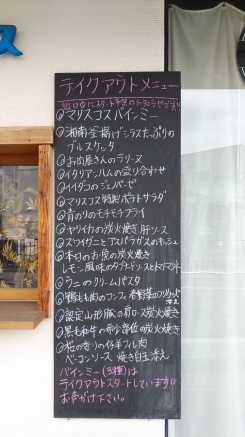 テイクアウトメニュー
マリスコスバインミー
湘南釜揚げシラスたっぷりの
ブルスケッタ
お肉屋さんのテリーヌ
イタリアンハムの盛り合わせ
イイダコのジェノベーゼ
マリスコス特製ポテトサラダ
青のりのモチモチフライ
ヤリイカの炭火焼き 肝ソース
ズワイガニとアスパラガスのキッシュ
本日のお魚の炭火焼き
レモン風味の
ウニのクリームパスタ
鴨もも肉のコンフィ
認定山形豚の肩ロース炭火焼き
黒毛和牛の希少部位の炭火焼き
桜の香りの仔羊フル肉
ベーコンソース 焼き白玉添え
バインミー(3種)は
テイクアウトスタートしています!!
お声がけ下さい。